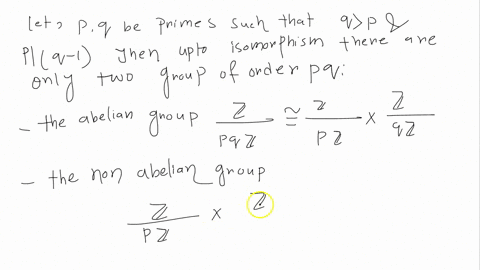 let, p.q be primes such that q>p &
p|(q-1) then upto isomorphism there are
only two group of order pq:
- the abelian group Z/pqZ ≅ Z/pZ × Z/qZ
- the non abelian group
Z/pZ × Z